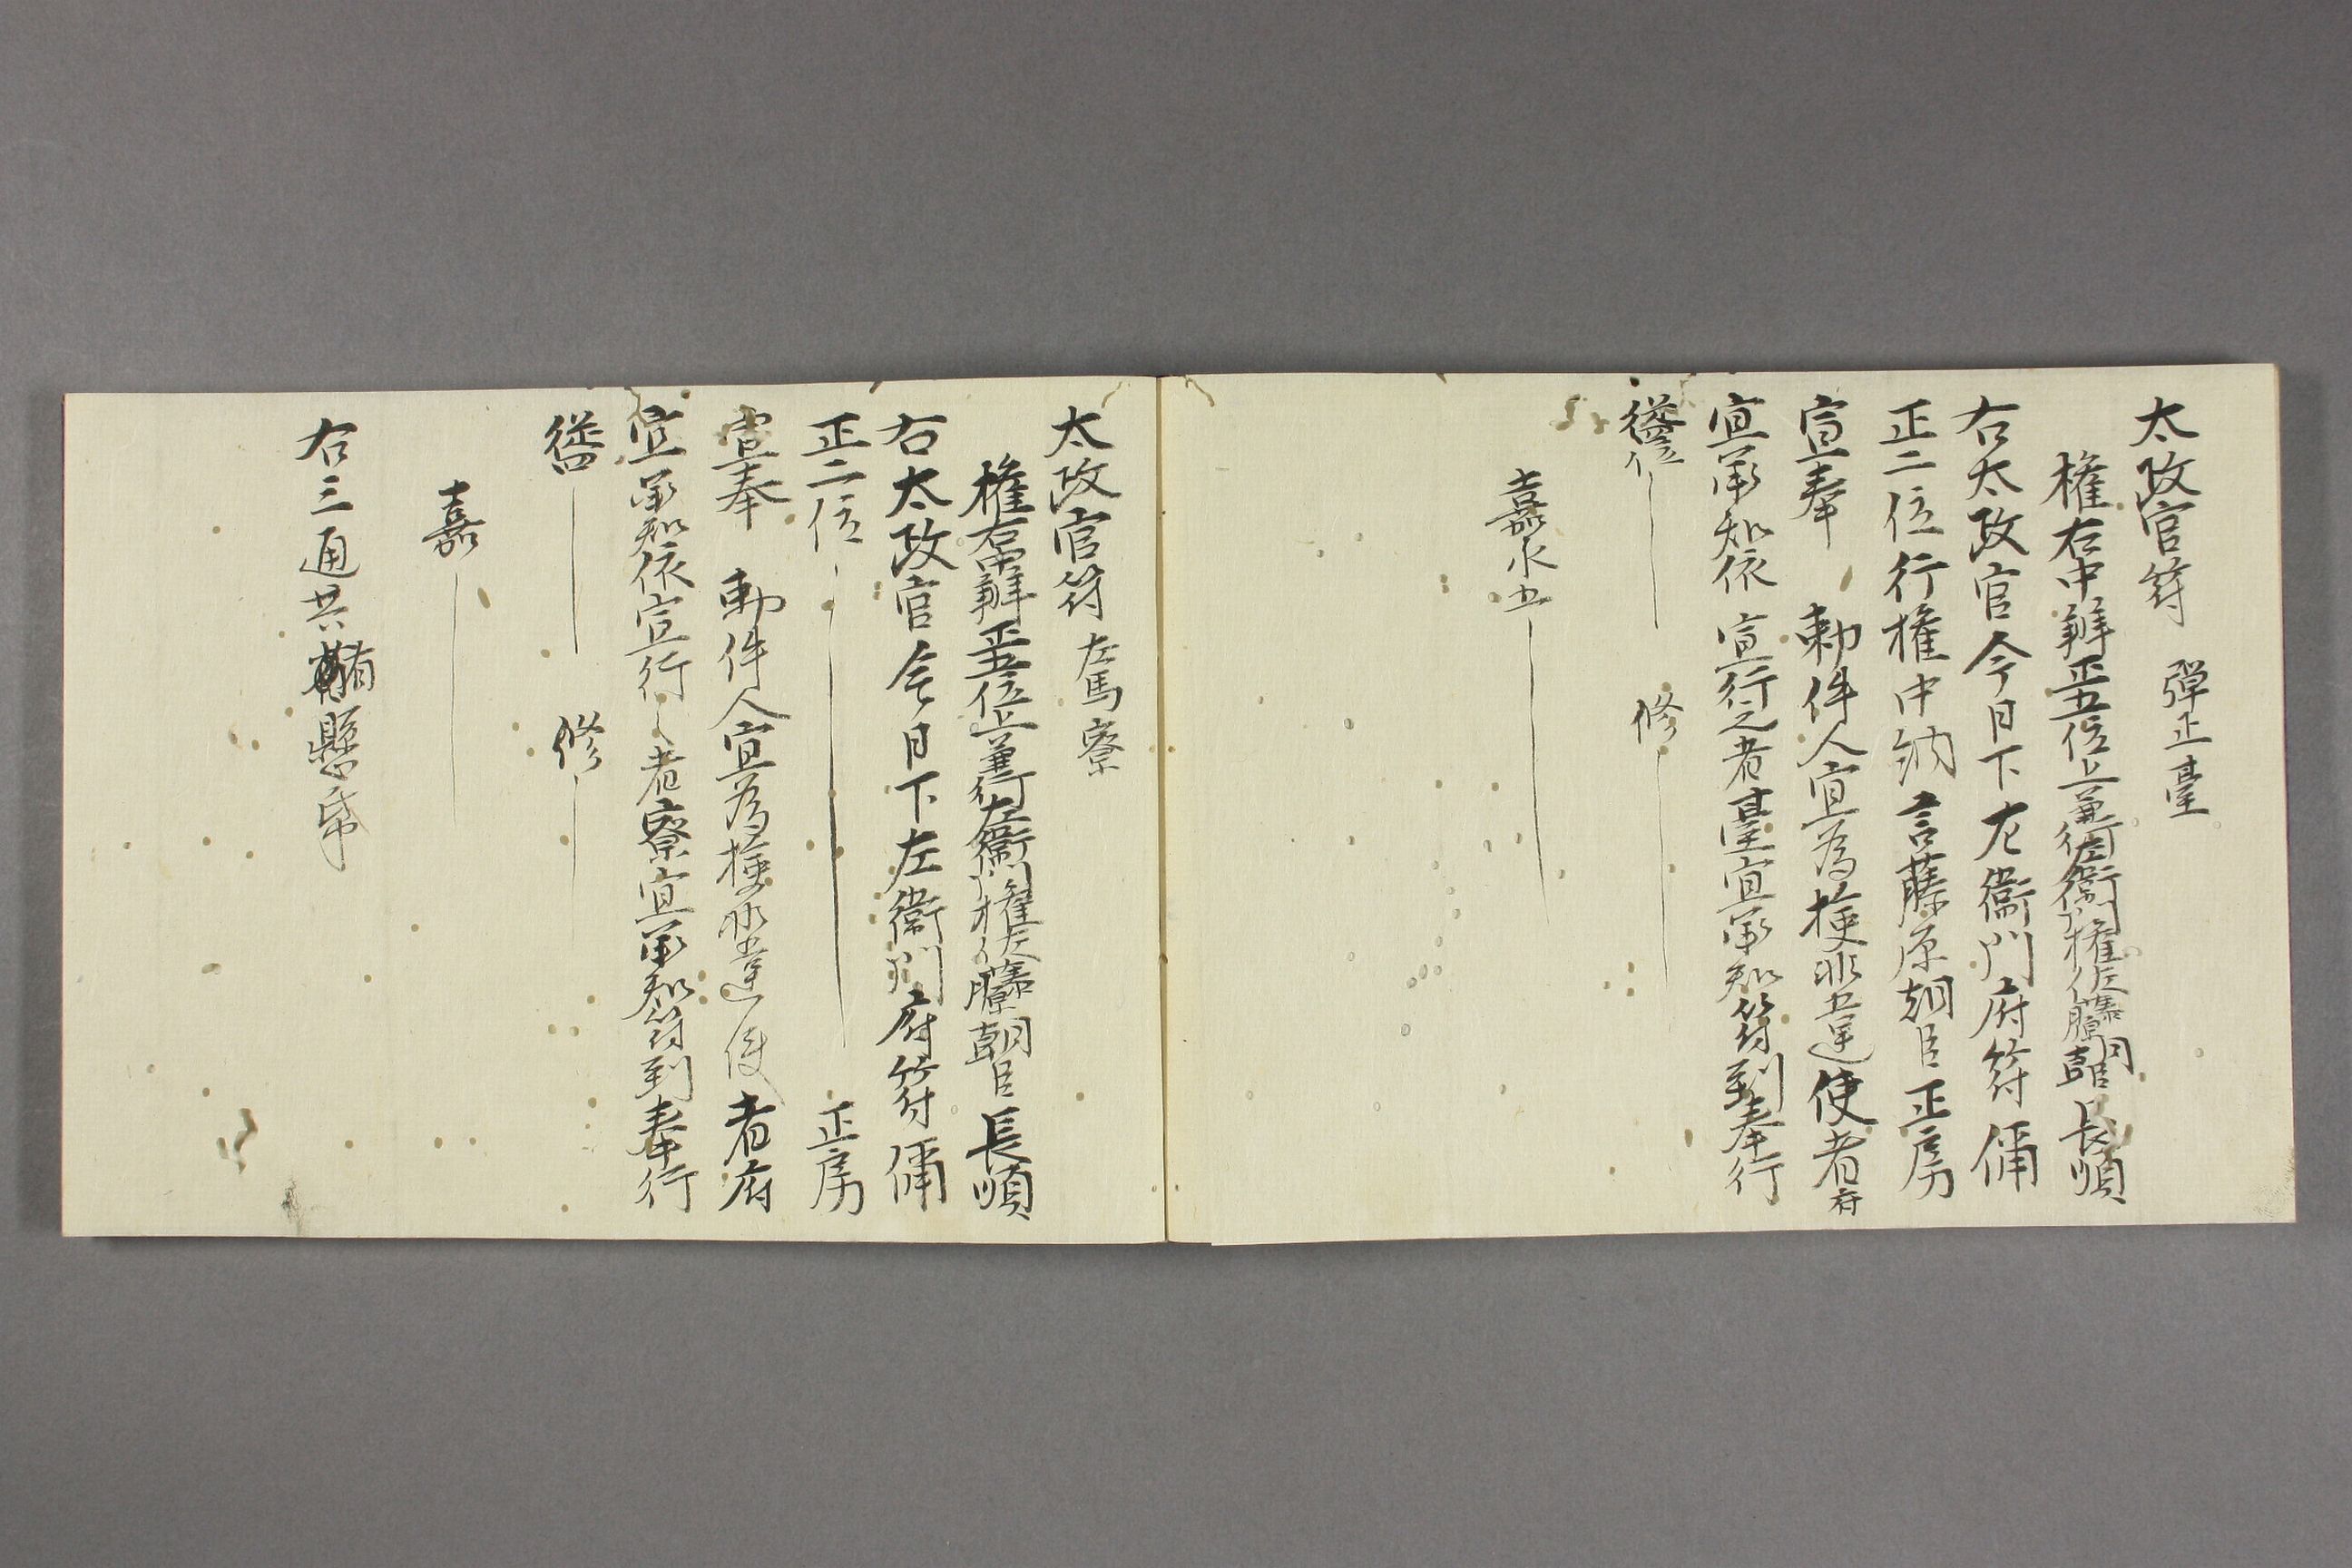 太政官符　弾正臺
権右中辨正五位上兼行左衞門権佐藤原朝臣長順
右太政官今日下左衞門府符偁
正二位行権中納言藤原朝臣正房
宣奉　勅件人宜為検非違使者府
宜承知依宣行之者臺宜承知符到奉行
従四位
修
嘉永五
太政官符　左馬寮
権右中辨正五位上兼行左衞門権佐藤原朝臣長順
右太政官今日下左衞門府符偁
正二位　正房
宣奉　勅件人宜為検非違使者府
宜承知依宣行之者寮宜承知符到奉行
従四
修
嘉
右三通共有懸帋